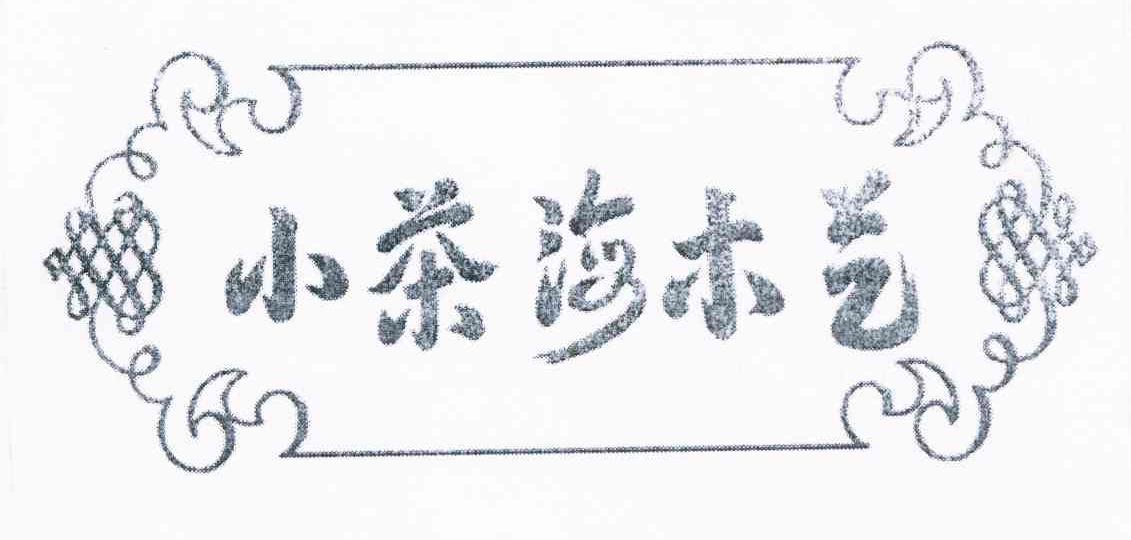 小茶海木艺